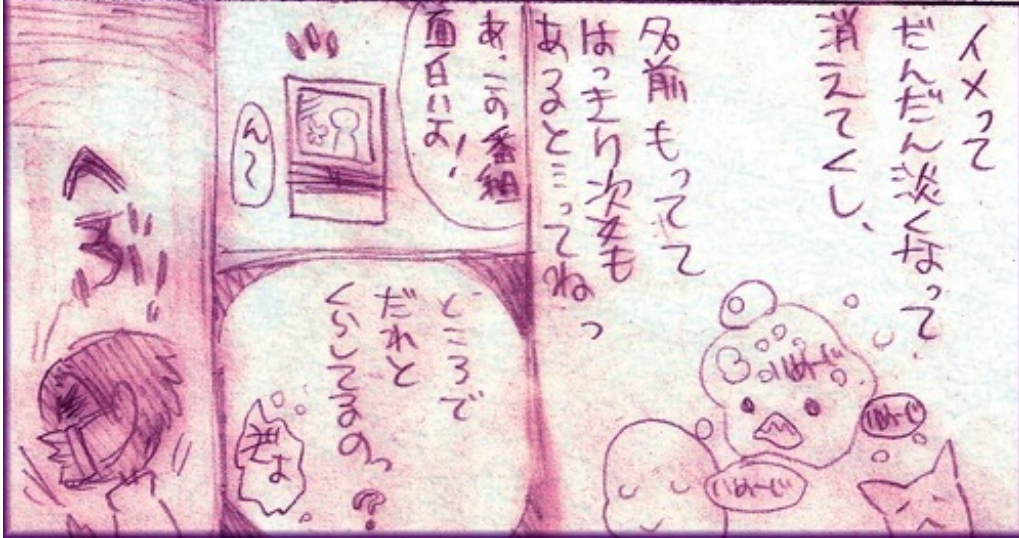 イメって
だんだん淡くなって
消えてくし、
名前もってて
はっきり次女も
あると…ってねっ
いめーじ
いめーじ
いめーじ
あ、この番組
面白いよ!
ん~
ところで
だれと
くらしてるの?
へぶ